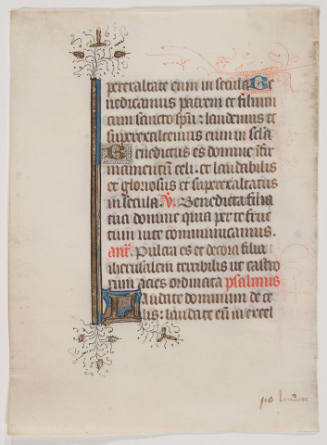 perexaltate eum in secula Be
nedicamus patrem et filium
cum sancto spu: laudemus et
superexaltemus eum in scla
Benedictus es domine in fir
mamento celi. et laudabilis
et gloriosus et superexaltatus
in secula. V. Benedicta filia
tua domino quia per te fruc
tum vite communicamus.
an. Pulcra es et decora filia
iherusalem terribilis ut castro
rum acies ordinata psalmus
Laudate dominum de ce
lis: laudate eu in excel